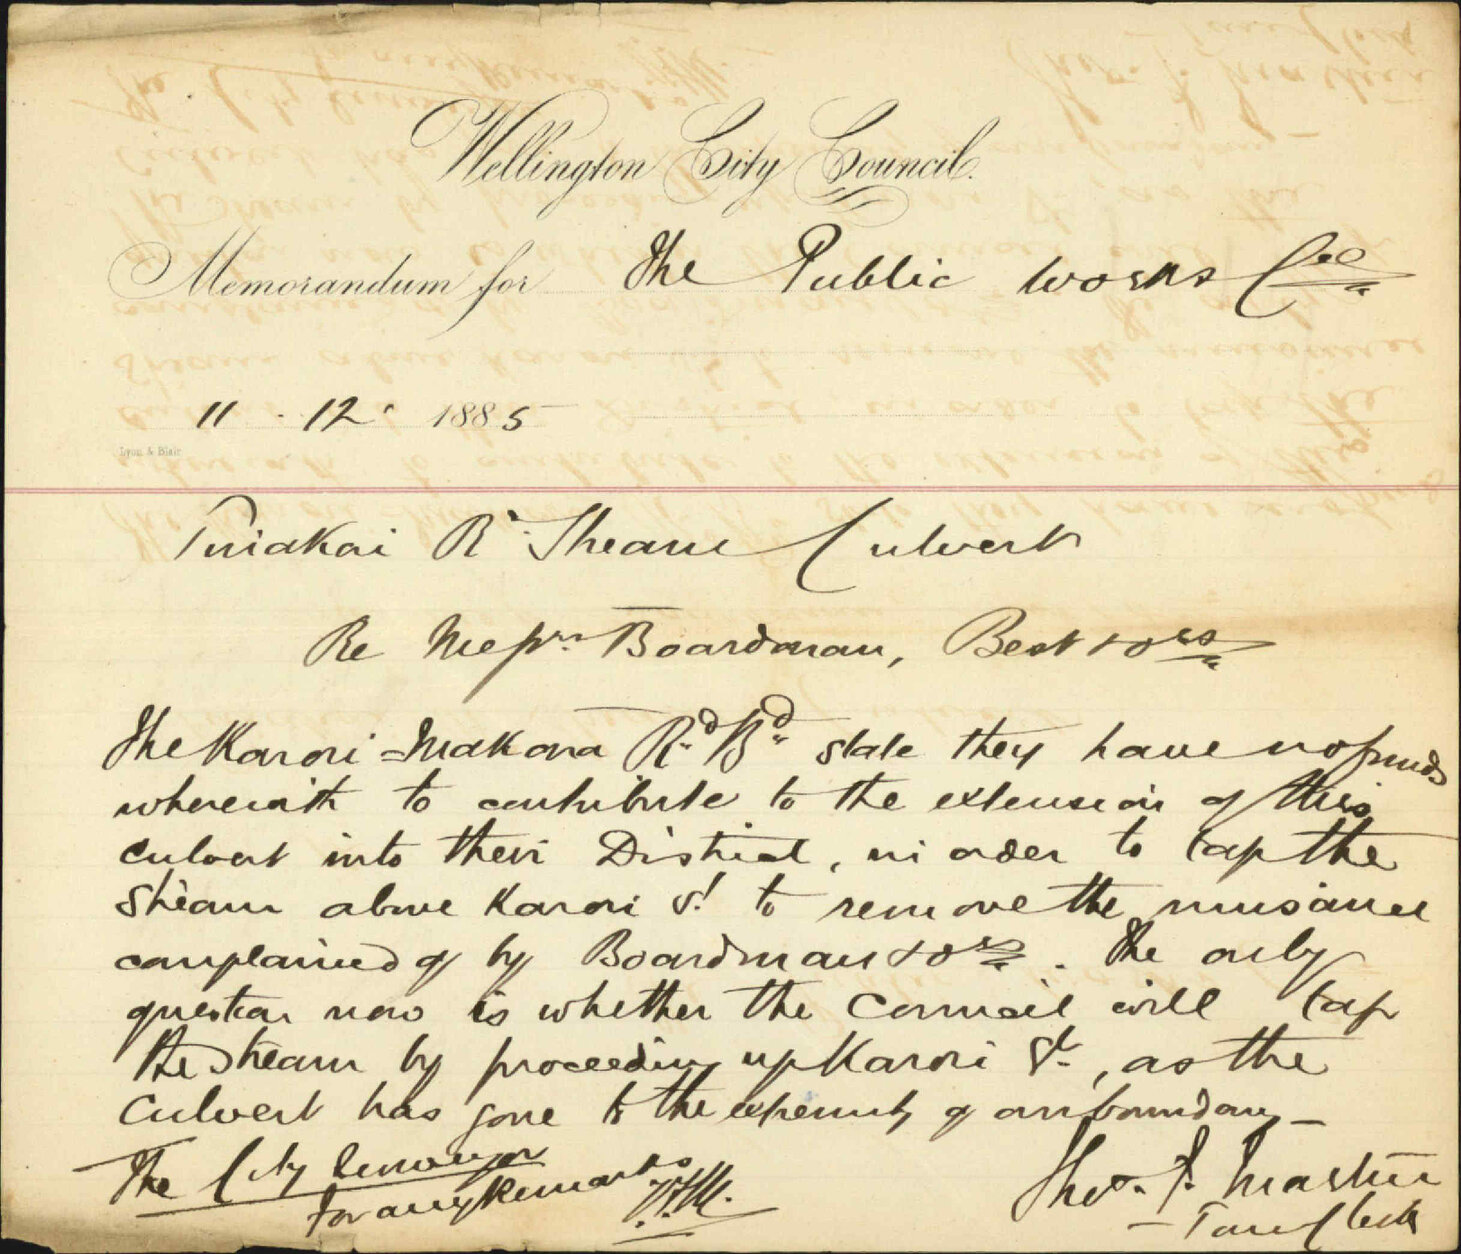 Wellington City Council.
Memorandum for The Public Works Cee
11 . 12 . 1885
Lyon & Blair
Tinakori Rd. Stream Culvert
Re Messrs. Boardman, Best & ors
The Karori-Makara Rd. Bd. state they have no funds
wherewith to contribute to the extension of this
culvert into their District, in order to tap the
stream above Karori St. to remove the nuisance
complained of by Boardman & ors. The only
question now is whether the Council will tap
the stream by proceeding up Karori St., as the
culvert has gone to the extremity of our boundary—
The City Surveyor
for any Remarks
Thos. F. Martin
Town Clerk